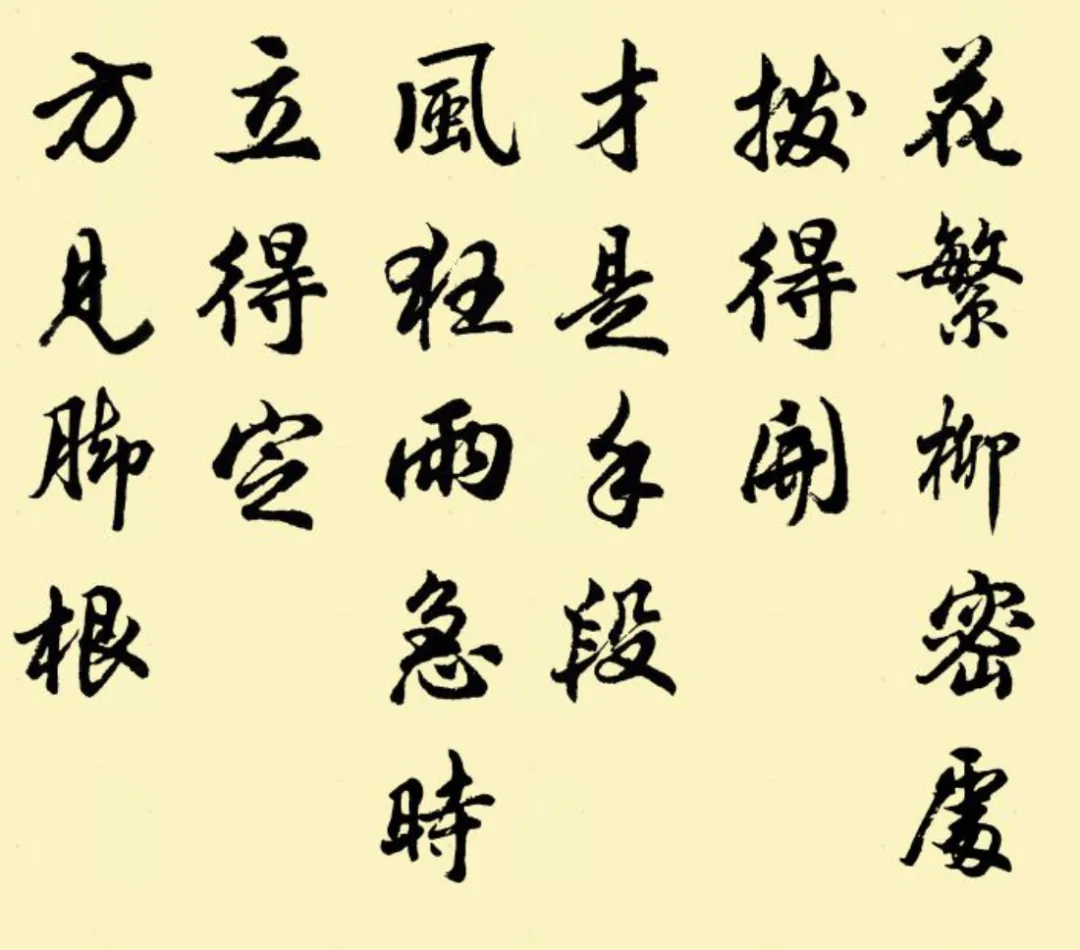 花繁柳密處
撥得開
才是手段
風狂雨急時
立得定
方見脚根